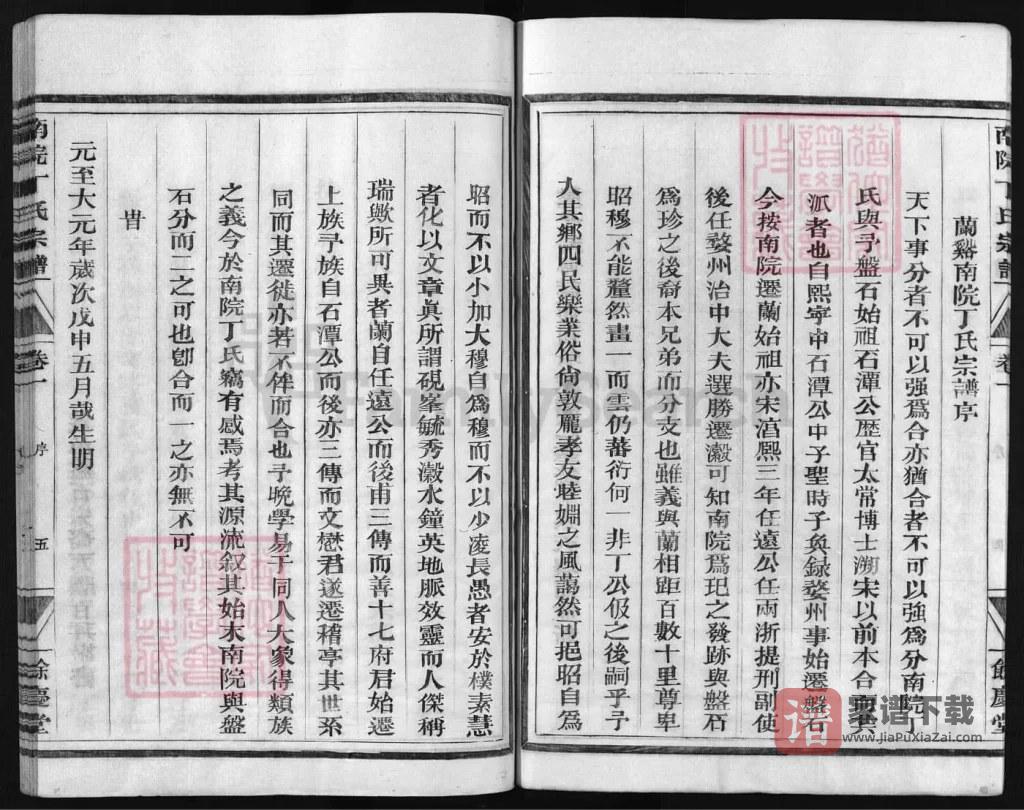 蘭谿南院丁氏宗譜序
天下事分者不可以强爲合亦猶合者不可以強爲分南院丁
氏與予盤石始祖石潭公歴官太常博士溯宋以前本合而共
派者也自熙寕中石潭公中子聖時子奐録婺州事始遷盤石
今按南院遷蘭始祖亦宋淳熙三年任遠公任兩浙提刑副使
後任婺州治中大夫選勝遷瀫可知南院爲玘之發跡與盤石
爲珍之後裔本兄弟而分支也雖義與蘭相距百數十里尊卑
昭穆不能釐然畫一而雲仍蕃衍何一非丁公伋之後嗣乎予
入其鄉四民樂業俗尙敦龎孝友睦婣之風藹然可挹昭自爲
昭而不以小加大穆自爲穆而不以少凌長愚者安於樸素慧
者化以文章眞所謂硯峯毓秀瀫水鐘英地脈效靈而人傑稱
瑞歟所可異者蘭自任遠公而後甫三傳而善十七府君始遷
上族予族自石潭公而後亦三傳而文懋君遂遷稽亭其世系
同而其遷徙亦若不侔而合也予晩學易于同人大象得類族
之義今於南院丁氏竊有感焉考其源流叙其始末南院與盤
石分而二之可也卽合而一之亦無不可
旹
元至大元年歲次戊申五月哉生明
南院丁氏宗譜
卷一
序
五
餘慶堂
南院丁氏宗譜
卷一
餘慶堂
FamilySearch
譜
家谱下载
www.JiaPuXiaZai.com